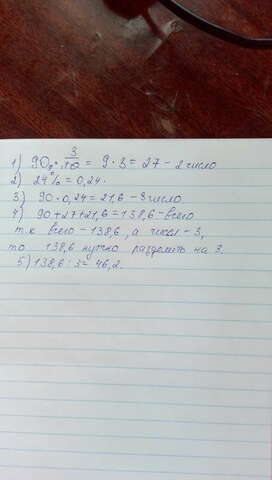 1) 90 · 3/10 = 9 · 3 = 27 - 2 число
2) 24% = 0,24.
3) 90 · 0,24 = 21,6 - 3 число
4) 90 + 27 + 21,6 = 138,6 - всего
т.к всего - 138,6, а чисел - 3,
то 138,6 нужно разделить на 3.
5) 138,6 : 3 = 46,2.